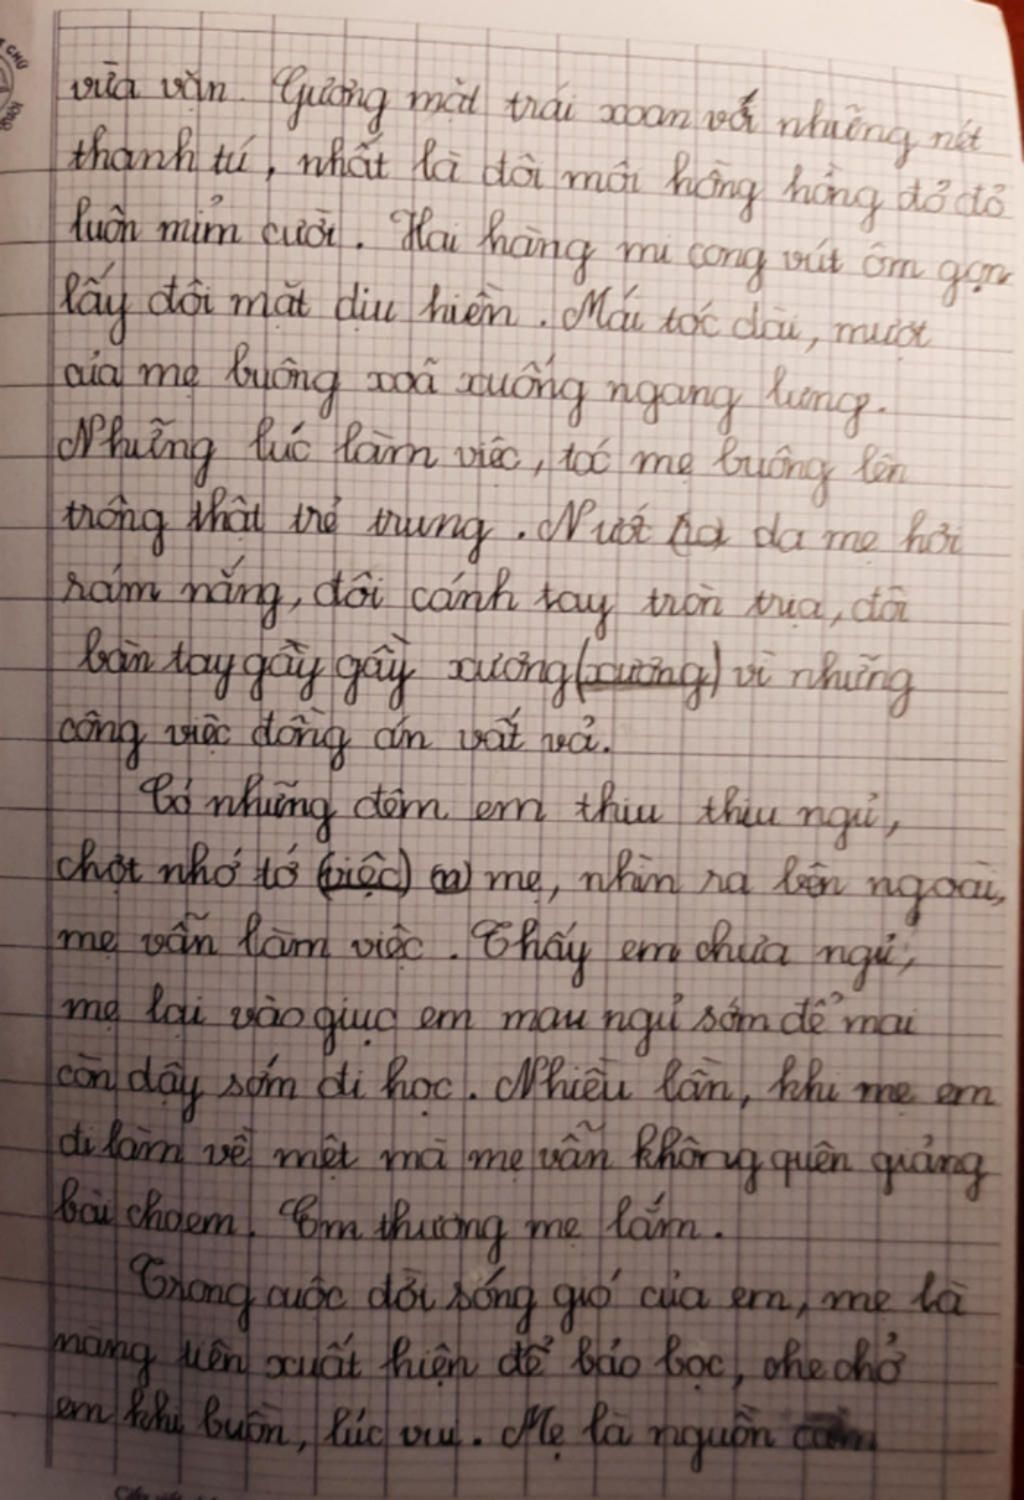 vừa vặn. Gương mặt trái xoan với những nét
thanh tú, nhất là đôi môi hồng hồng đỏ đỏ
luôn mỉm cười. Hai hàng mi cong vút ôm gọn
lấy đôi mắt dịu hiền. Mái tóc dài, mượt
của mẹ buông xoã xuống ngang lưng.
Những lúc làm việc, tóc mẹ buông lên
trông thật trẻ trung. Nướt da mẹ hơi
rám nắng, đôi cánh tay tròn trịa, đôi
bàn tay gầy gầy xương (xương) vì những
công việc đồng án vất vả.
Có những đêm em thiu thiu ngủ,
chợt nhớ tớ (việc) mẹ, nhìn ra bên ngoài,
mẹ vẫn làm việc. Thấy em chưa ngủ,
mẹ lại vào giục em mau ngủ sớm để mai
còn dậy sớm đi học. Nhiều lần, khi mẹ em
đi làm về mệt mà mẹ vẫn không quên giảng
bài cho em. Em thương mẹ lắm.
Trong cuộc đời sống gió của em, mẹ là
nàng tiên xuất hiện để bảo bọc, che chở
em khi buồn, lúc vui. Mẹ là nguồn